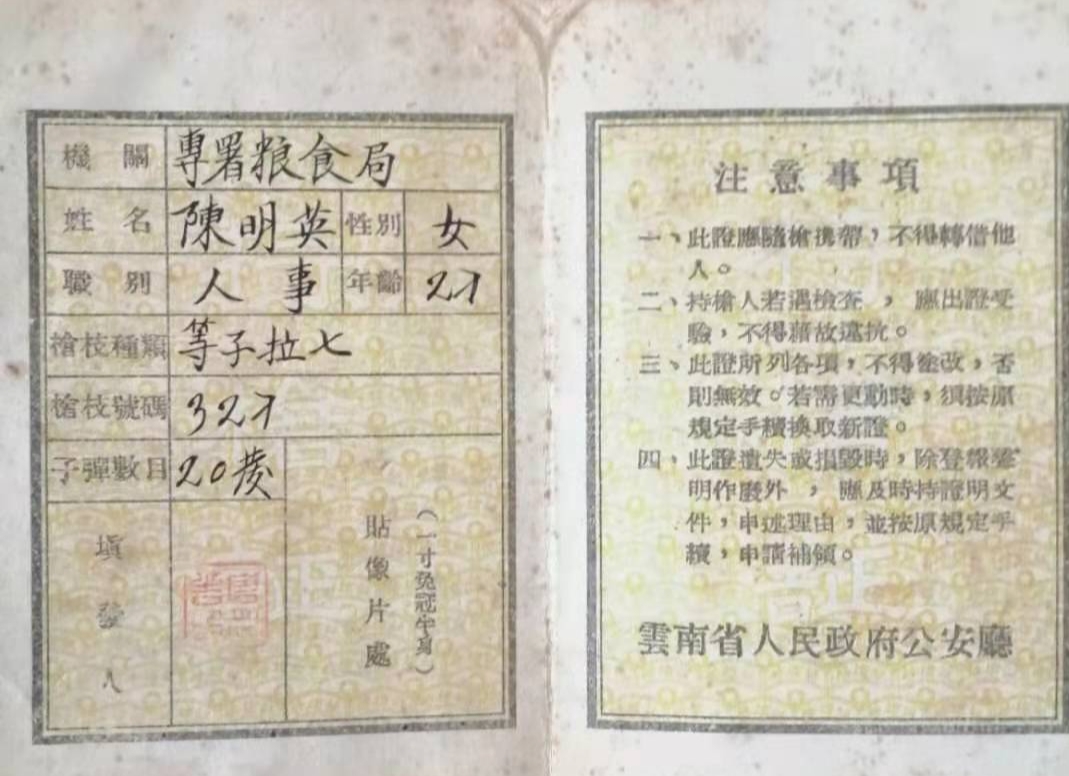 機關 專署粮食局
姓名 陳明英 性別 女
職別 人事 年齡 27
槍枝種類 等子拉七
槍枝號碼 327
子彈數目 20發
填發人
貼像片處
(一寸免冠半身)
注意事項
一、此證應隨槍携帶,不得轉借他
人。
二、持槍人若遇檢查,應出證受
驗,不得藉故違抗。
三、此證所列各項,不得塗改,否
則無效。若需更動時,須按原
規定手續換取新證。
四、此證遺失或損毀時,除登報聲
明作廢外,應及時持證明文
件,申述理由,並按原規定手
續,申請補領。
雲南省人民政府公安廳